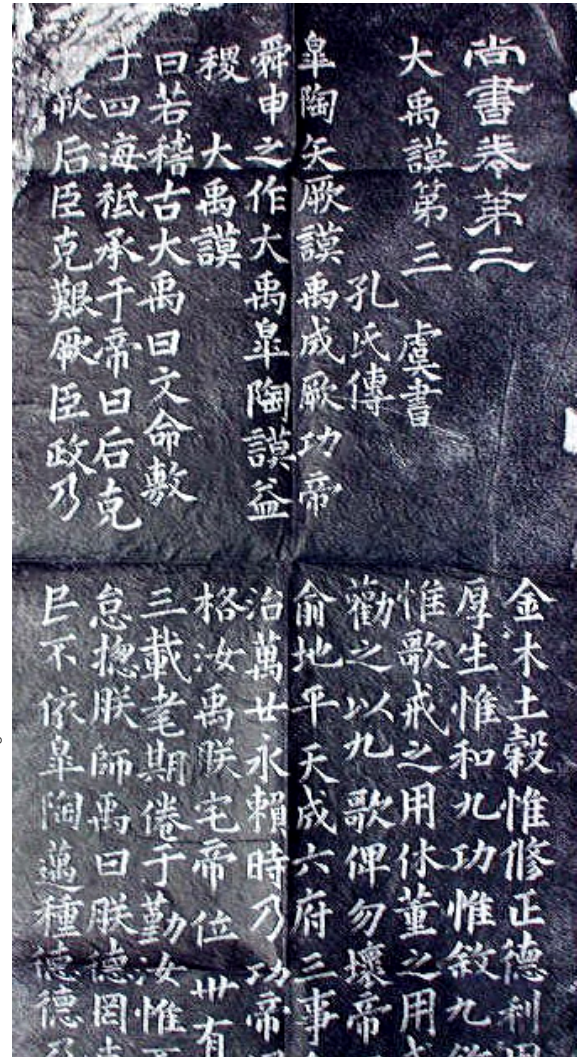 尚書卷第二
大禹謨第三 虞書
孔氏傳
皐陶矢厥謨禹成厥功帝
舜申之作大禹皐陶謨益
稷 大禹謨
曰若稽古大禹曰文命敷
于四海祗承于帝曰后克
后臣克艱厥臣政乃
金木土穀惟修正德利
厚生惟和九功惟敘九
惟歌戒之用休董之用
勸之以九歌俾勿壞帝
俞地平天成六府三事
治萬世永賴時乃功帝
格汝禹朕宅帝位卅有
三載耄期倦于勤汝惟
怠揔朕師禹曰朕德罔
民不依皐陶邁種德德乃